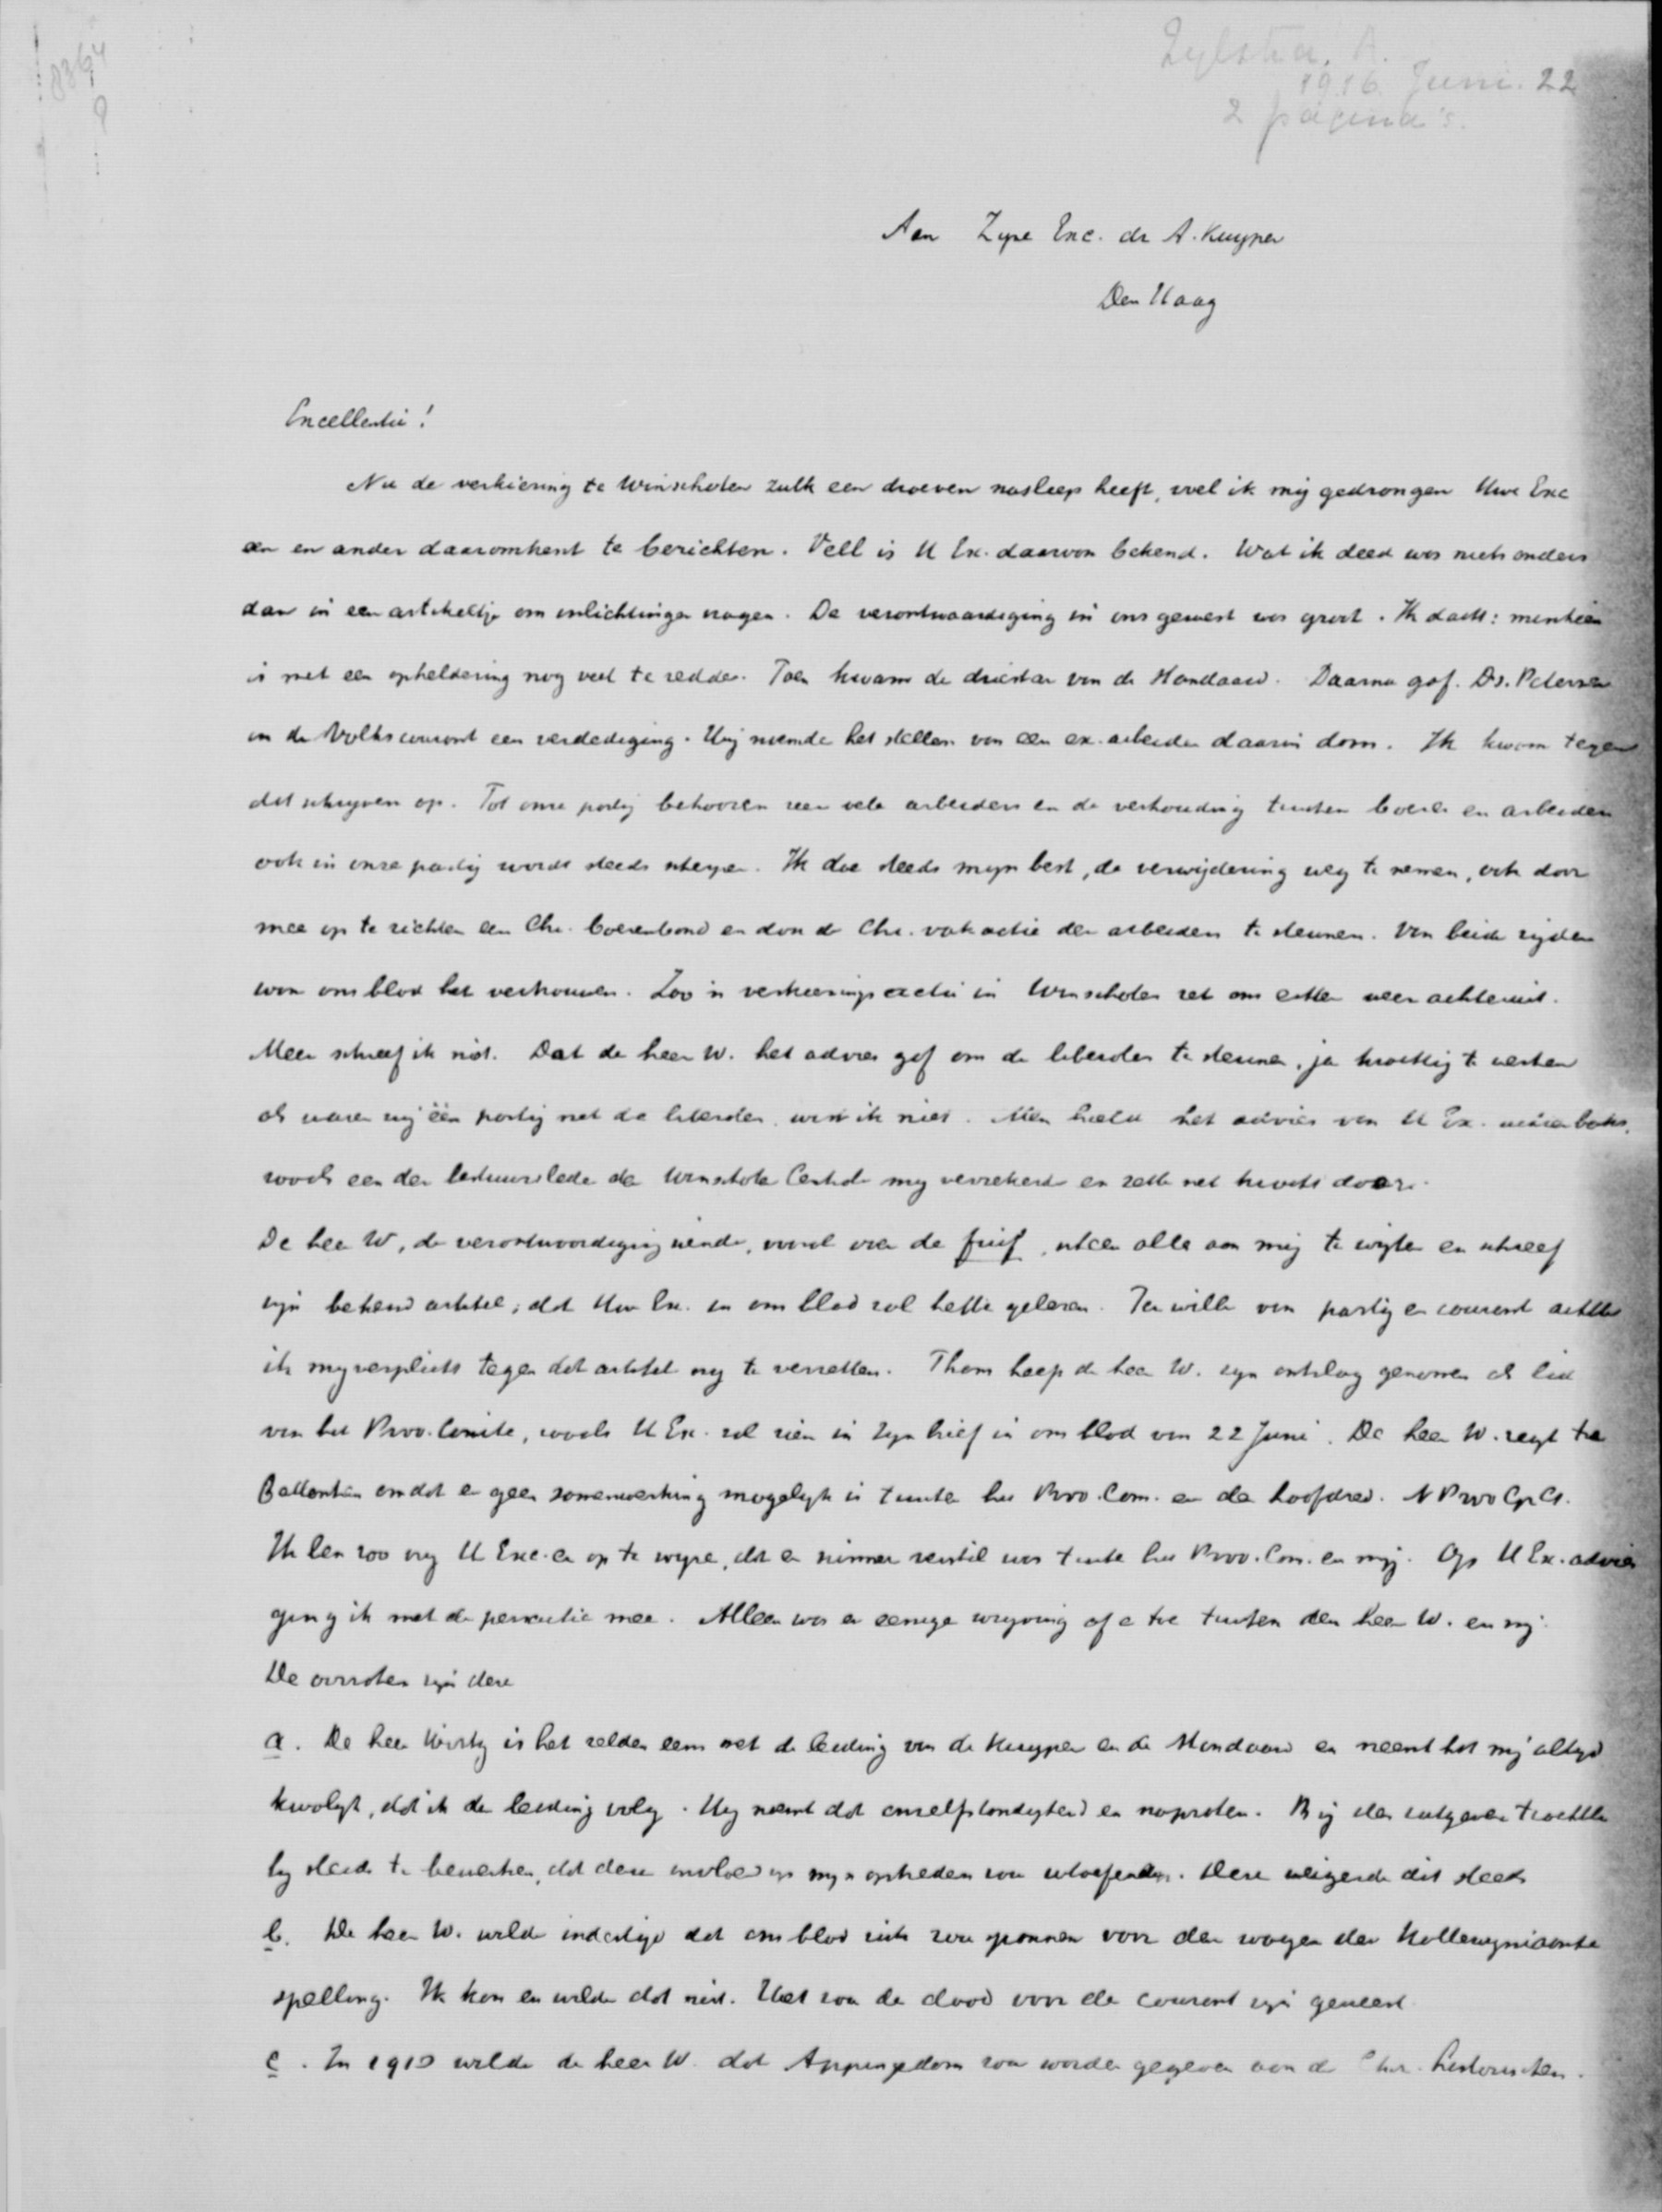 8364
Zylstra, A.
1916 Juni. 22
2 pagina's.
Aan Zyne Exc. dr A. Kuyper
Den Haag
Excellentie!
Nu de verkiezing te Winschoten zulk een droeven nasleep heeft, voel ik mij gedrongen Uwe Exc
een en ander daaromtrent te berichten. Veel is U Ex. daarvan bekend. Wat ik deed was niets anders
dan in een artikeltje om inlichtingen vragen. De verontwaardiging in ons gewest was groot. Ik dacht: misschien
is met een opheldering nog veel te redden. Toen kwam de driestar van de Standaard. Daarna gaf Ds. Petersen
in de Volkscourant een verdediging. Hij noemde het stellen van een ex. arbeider daarin dom. Ik kwam tegen
dat schryven op. Tot onze partij behooren zeer vele arbeiders en de verhouding tusschen boeren en arbeiders
ook in onze partij wordt steeds scherper. Ik doe steeds myn best, de verwijdering weg te nemen, ook door
mee op te richten een Chr. boerenbond en dan de Chr. vakactie der arbeiders te steunen. Van beide zyden
won ons blad het vertrouwen. Zoo'n verkiezingsactie in Winschoten zet ons echter weer achteruit.
Meer schreef ik niet. Dat de heer W. het advies gaf om de liberalen te steunen, ja krachtig te werken
als waren wij één partij met de liberalen, wist ik niet. Men hield het advies van U Ex.
zooals een der bestuursleden der Winschoter Centrale my verzekerde en zette het hoofd door.
De heer W, de verontwaardiging ziende, vooral over de fuif, alles aan mij te wijten en schreef
zyn bekend artikel, dat Uw Ex. in ons blad zal hebben gelezen. Ter wille van partij en courant achtte
ik my verplicht tegen dat artikel my te verzetten. Thans heeft de heer W. zyn ontslag genomen als lid
van het Prov. Comite, zooals U Ex. zal zien in zyn brief in ons blad van 22 Juni. De heer W. zegt
omdat er geen samenwerking mogelyk is tusschen het Prov. Com. en de hoofdred. N Prov Gr Ct.
Ik ben zoo vry U Exc. er op te wyzen, dat er nimmer verschil was tusschen het Prov. Com. en mij. Op U Ex. advies
ging ik met de mee. Alleen was er eenige wryving af en toe tusschen den heer W. en mij.
De oorzaken zyn deze
a. De heer is het zelden eens met de leiding van dr Kuyper en de Standaard en neemt het mij altyd
kwalyk, dat ik de leiding volg. Hij noemt dat onzelfstandigheid en napraten. Bij den uitgever trachtte
hy steeds te bewerken, dat deze invloed op myn optreden zou uitoefenen. Deze weigerde dit steeds
b. De heer W. wilde indertijd dat ons blad zich zou spannen voor den wagen der Kollewynaansche
spelling. Ik kon en wilde dat niet. Het zou de dood voor de courant zyn geweest.
c. In 1910 wilde de heer W. dat Appingedam zou worden gegeven aan de Chr. historischen.